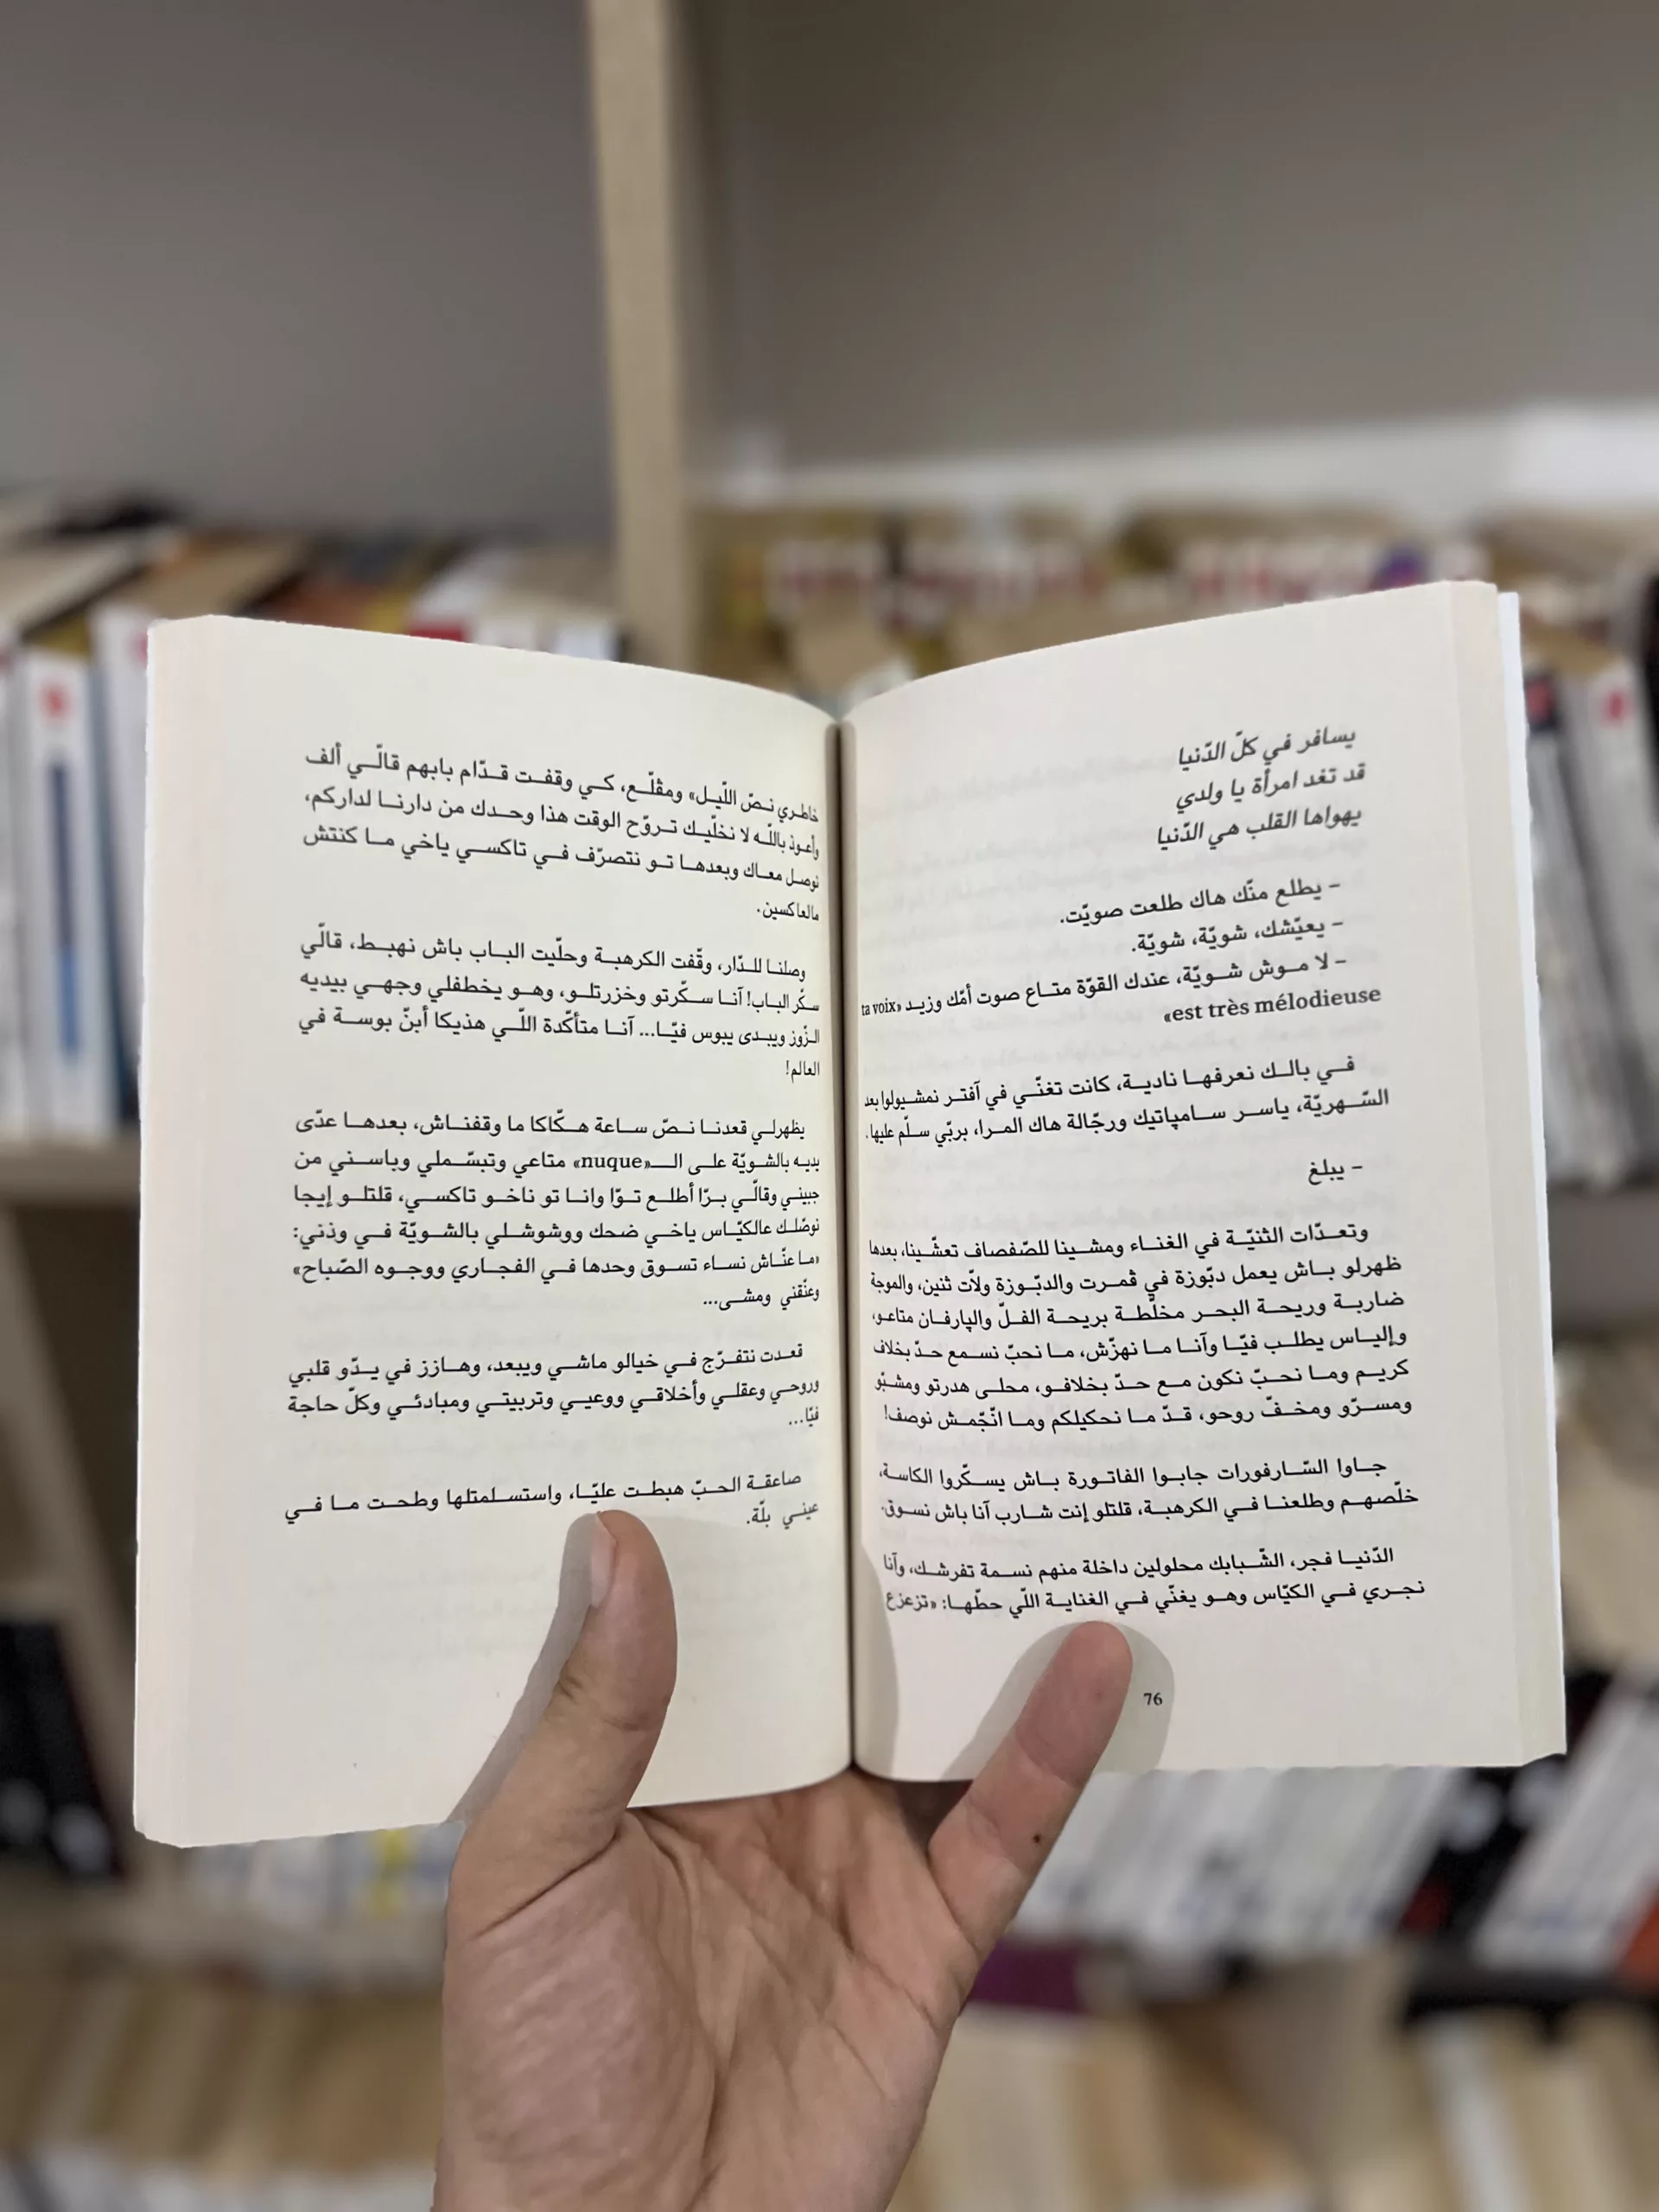 يسافر في كلّ الدّنيا
قد تغد امرأة يا ولدي
يهواها القلب هي الدّنيا
- يطلع منّك هاك طلعت صويّت.
- يعيّشك، شويّة، شويّة.
- لا موش شويّة، عندك القوّة متاع صوت أمّك وزيد «ta voix
est très mélodieuse»
في بالك نعرفها نادية، كانت تغنّي في آفتر نمشيولوا بعد
السّهريّة، ياسر سامپاتيك ورجّالة هاك المرا، بربّي سلّم عليها.
- يبلغ
وتعدّات الثنيّة في الغناء ومشينا للصّفصاف تعشّينا، بعدها
ظهرلو باش يعمل دبّوزة في ڨمرت والدبّوزة ولاّت ثنين، والموجة
ضاربة وريحة البحر مخلّطة بريحة الفلّ والپارفان متاعو،
وإلياس يطلب فيّا وآنا ما نهزّش، ما نحبّ نسمع حدّ بخلاف
كريم وما نحبّ نكون مع حدّ بخلافو، محلى هدرتو ومشبّو
ومسرّو ومخفّ روحو، قدّ ما نحكيلكم وما انّجّمش نوصف!
جاوا السّارفورات جابوا الفاتورة باش يسكّروا الكاسة،
خلّصهم وطلعنا في الكرهبة، قلتلو إنت شارب آنا باش نسوق.
الدّنيا فجر، الشّبابك محلولين داخلة منهم نسمة تفرشك، وآنا
نجري في الكيّاس وهو يغنّي في الغناية اللّي حطّها: «تزعزع
76
خاطري نصّ اللّيل» ومڨلّع، كي وقفت قدّام بابهم قالّي ألف
وأعوذ باللّه لا نخلّيك تروّح الوقت هذا وحدك من دارنا لداركم،
نوصل معاك وبعدها تو نتصرّف في تاكسي ياخي ما كنتش
مالعاكسين.
وصلنا للدّار، وقّفت الكرهبة وحلّيت الباب باش نهبط، قالّي
سكّر الباب! آنا سكّرتو وخزرتلو، وهو يخطفلي وجهي بيديه
الزّوز ويبدى يبوس فيّا... آنا متأكّدة اللّي هذيكا أبنّ بوسة في
العالم!
يظهرلي قعدنا نصّ ساعة هكّاكا ما وقفناش، بعدها عدّى
يديه بالشويّة على الـ«nuque» متاعي وتبسّملي وباسني من
جبيني وقالّي برّا أطلع توّا وانا تو ناخو تاكسي، قلتلو إيجا
نوصّلك عالكيّاس ياخي ضحك ووشوشلي بالشويّة في وذني:
«ما عنّاش نساء تسوق وحدها في الفجاري ووجوه الصّباح»
وعنّقني ومشى...
قعدت نتفرّج في خيالو ماشي ويبعد، وهازز في يدّو قلبي
وروحي وعقلي وأخلاقي ووعيي وتربيتي ومبادئي وكلّ حاجة
فيّا...
صاعقة الحبّ هبطت عليّا، واستسلمتلها وطحت ما في
عيني بلّة.